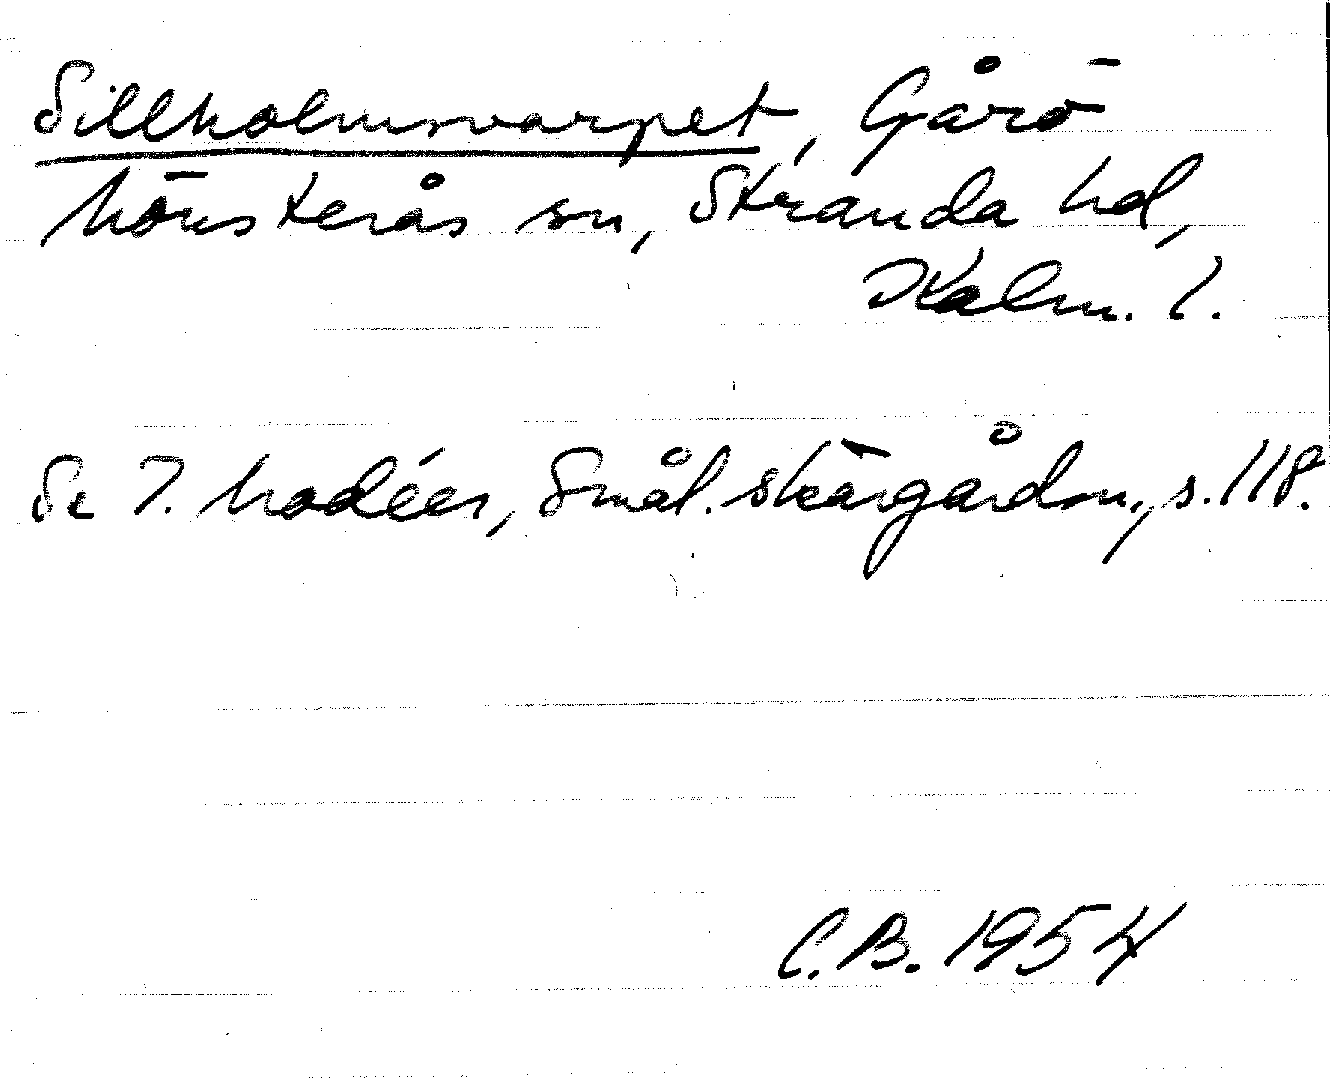 Sillholmsvarpet, Gårö
Mönsterås sn, Stranda hd,
Kalm. l.
Se I. Modéer, Smål. skärgårdsn., s. 118.
C.B. 1954